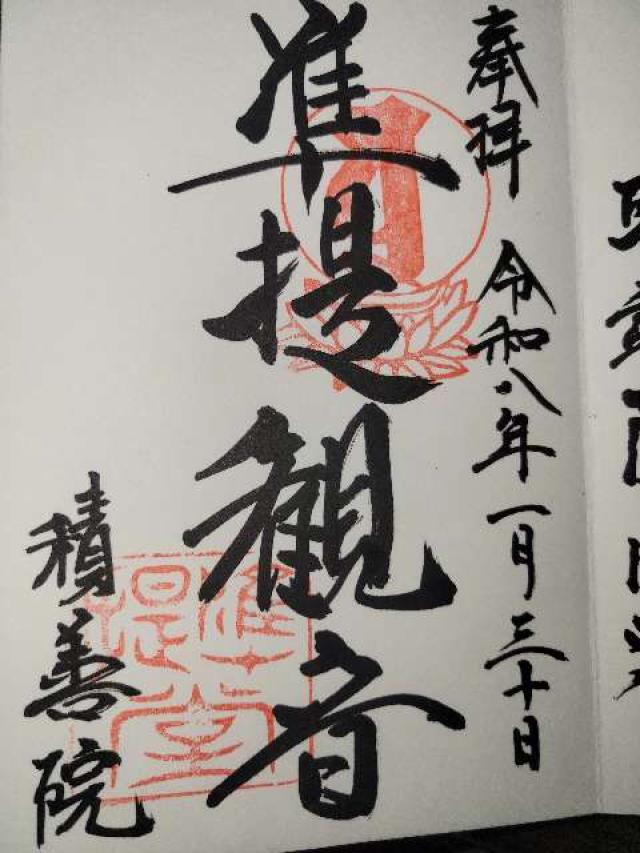 奉拝 令和八年一月三十日
準提観音
積善院
準提堂